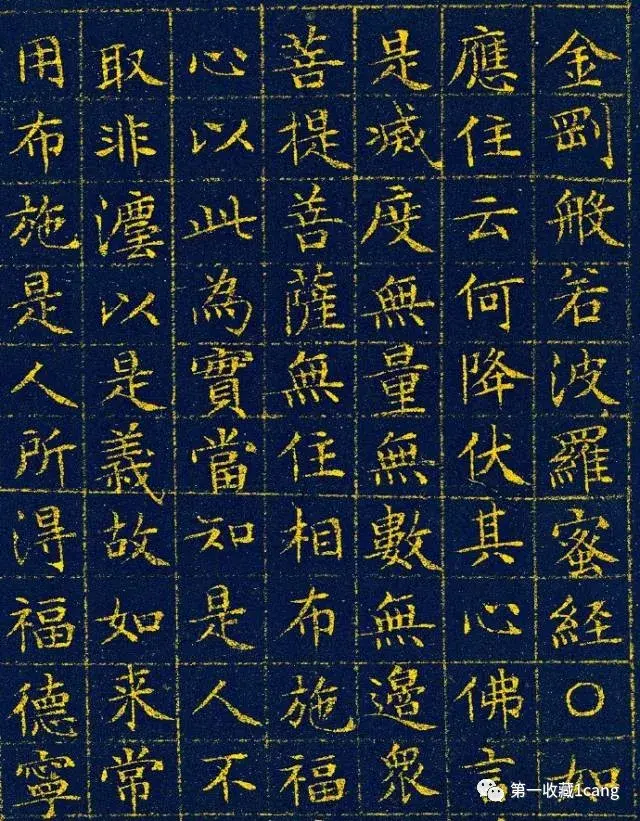 金剛般若波羅蜜經○如
應住云何降伏其心佛言
是滅度無量無數無邊眾
菩提菩薩無住相布施福
心以此為實當知是人不
取非灋以是義故如来常
用布施是人所得福德寧
第一收藏1cang